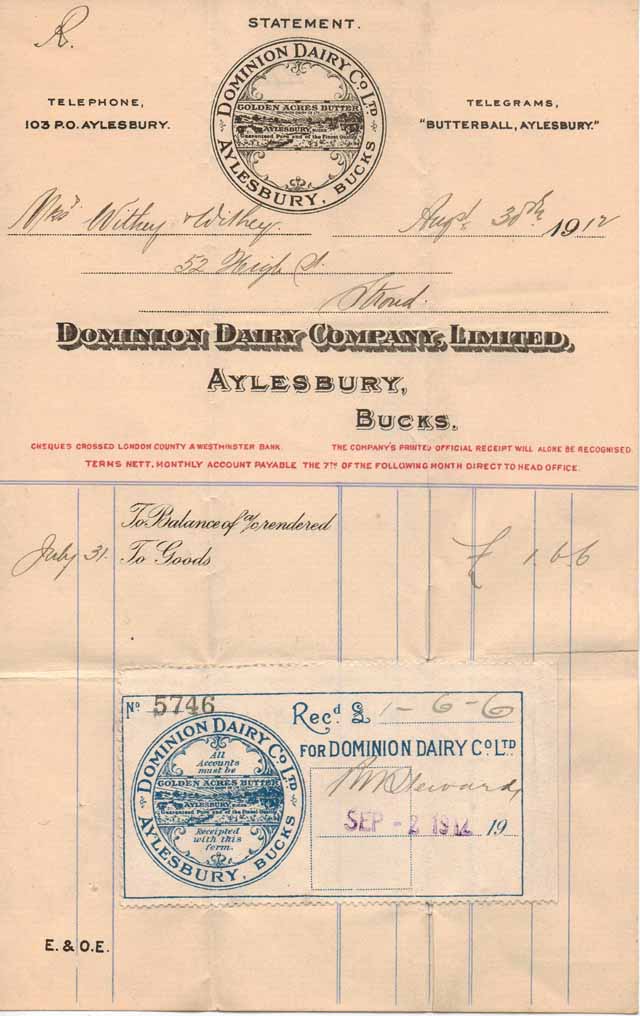 R.
STATEMENT.
DOMINION DAIRY CO LTD
AYLESBURY, BUCKS
GOLDEN ACRES BUTTER
AYLESBURY, BUCKS
Guaranteed Pure and of the Finest Quality
TELEPHONE,
103 P.O. AYLESBURY.
TELEGRAMS,
"BUTTERBALL, AYLESBURY."
Messrs Withey & Withey. Augst 30th 1912
52 High St.
Stroud.
DOMINION DAIRY COMPANY, LIMITED,
AYLESBURY,
BUCKS.
CHEQUES CROSSED LONDON COUNTY & WESTMINSTER BANK. THE COMPANY'S PRINTED OFFICIAL RECEIPT WILL ALONE BE RECOGNISED.
TERMS NETT, MONTHLY ACCOUNT PAYABLE THE 7TH OF THE FOLLOWING MONTH DIRECT TO HEAD OFFICE.
To Balance of a/c rendered
July 31. To Goods £ 1. 6. 6
No 5746
Recd £ 1-6-6
FOR DOMINION DAIRY Co LTD
Steward
SEP - 2 1912 19
DOMINION DAIRY Co LTD
AYLESBURY, BUCKS
All
Accounts
must be
GOLDEN ACRES BUTTER
AYLESBURY, BUCKS
Guaranteed Pure and of the Finest Quality
Receipted
with this
form.
E. & O.E.